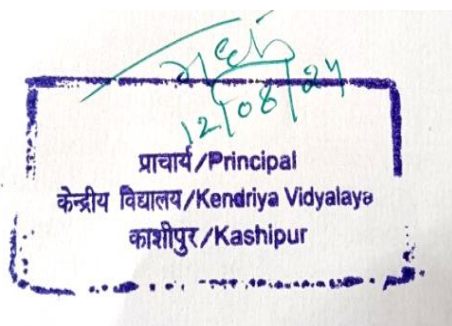 12/08/24
प्राचार्य/Principal
केन्द्रीय विद्यालय/Kendriya Vidyalaya
काशीपुर/Kashipur